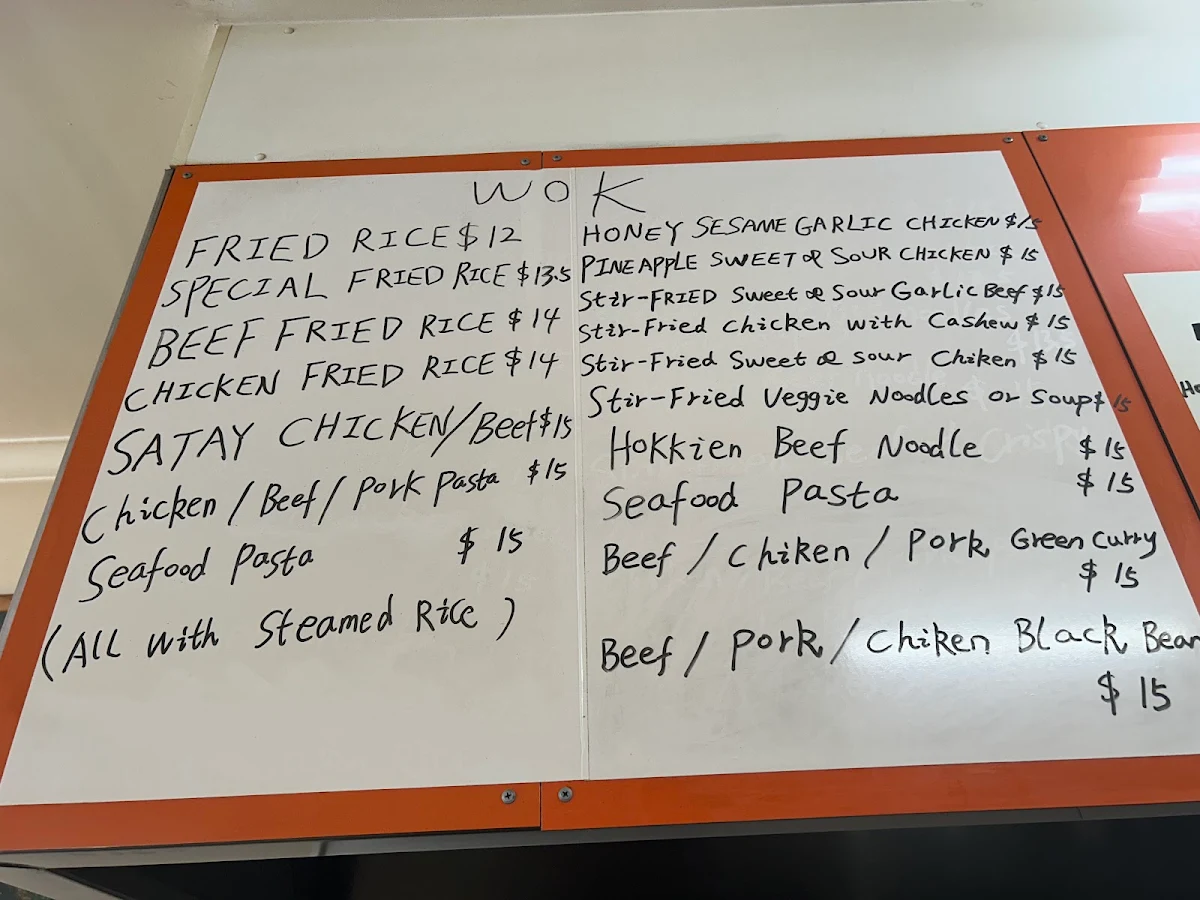 WOK
FRIED RICE $12
SPECIAL FRIED RICE $13.5
BEEF FRIED RICE $14
CHICKEN FRIED RICE $14
SATAY CHICKEN/Beef $15
Chicken / Beef / Pork Pasta $15
Seafood Pasta $15
(ALL with Steamed Rice)
HONEY SESAME GARLIC CHICKEN $15
PINEAPPLE SWEET & SOUR CHICKEN $15
Stir-FRIED Sweet & Sour Garlic Beef $15
Stir-Fried Chicken with Cashew $15
Stir-Fried Sweet & Sour Chiken $15
Stir-Fried Veggie Noodles or Soup $15
Hokkien Beef Noodle $15
Seafood Pasta $15
Beef / Chiken / Pork Green Curry
$15
Beef / Pork / Chiken Black Bean
$15